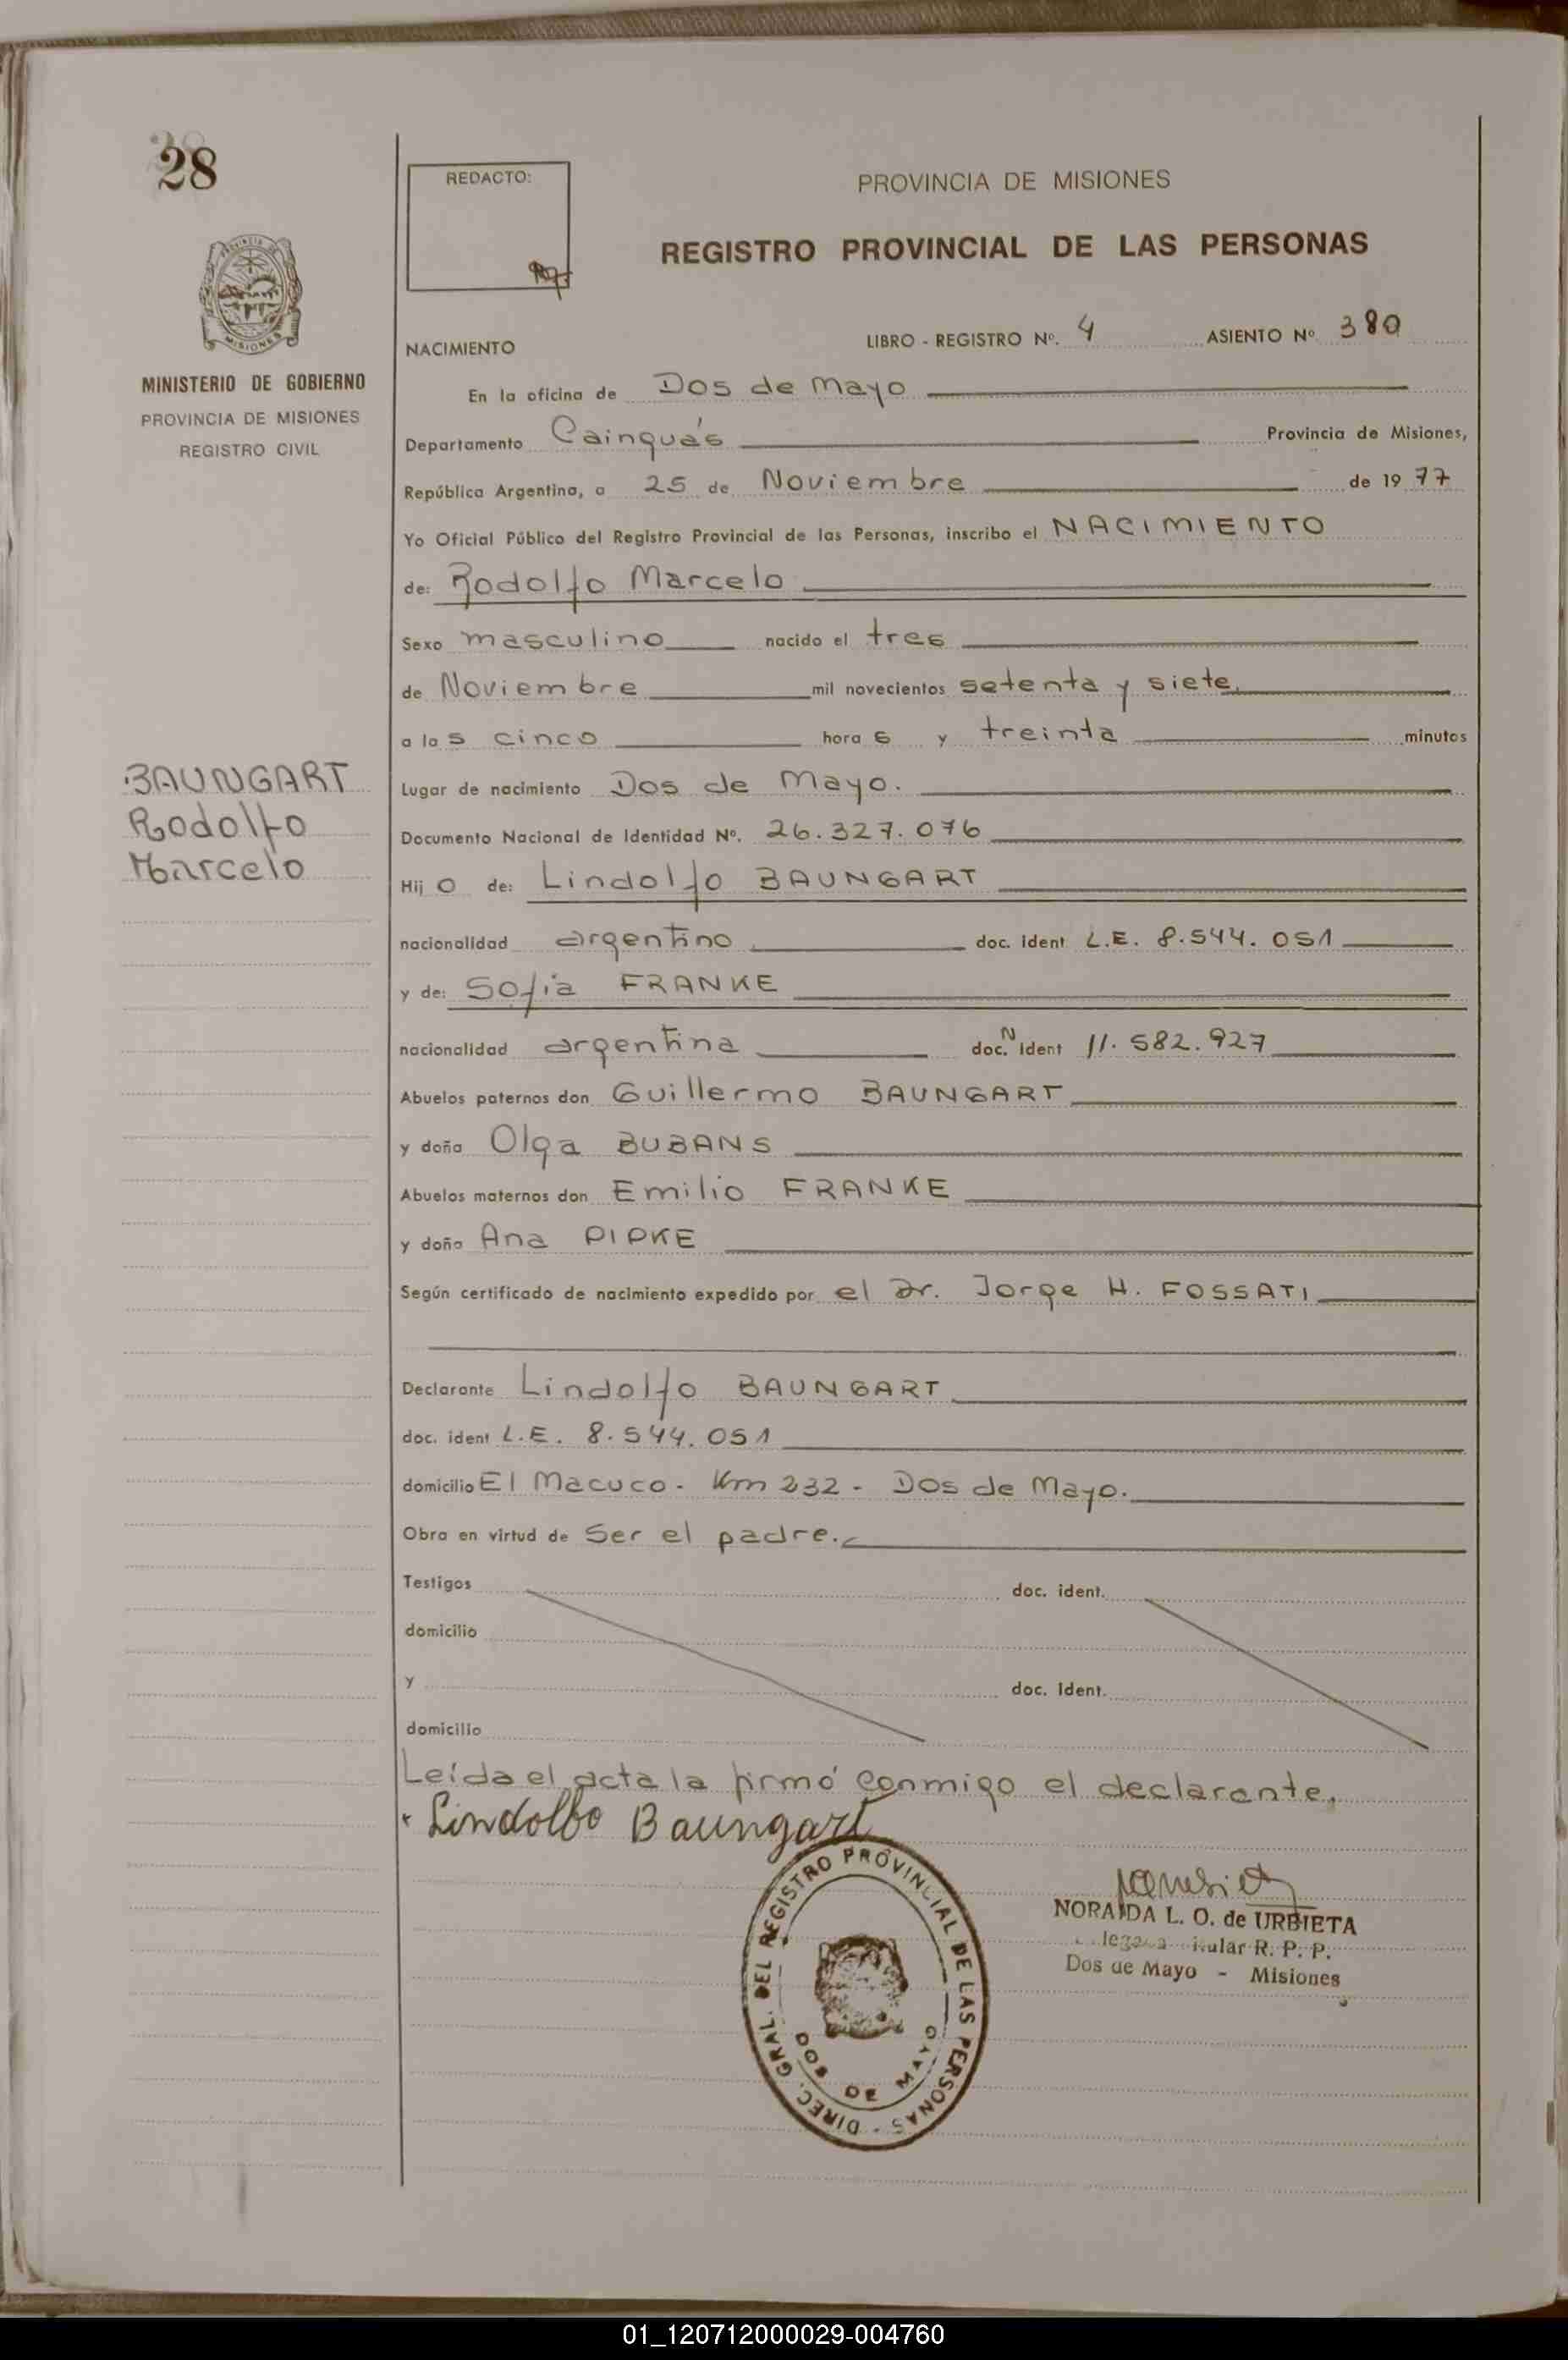 28
MINISTERIO DE GOBIERNO
PROVINCIA DE MISIONES
REGISTRO CIVIL
BAUNGART
Rodolfo
Marcelo
REDACTO:
PROVINCIA DE MISIONES
REGISTRO PROVINCIAL DE LAS PERSONAS
NACIMIENTO LIBRO - REGISTRO Nº. 4 ASIENTO Nº 380
En la oficina de Dos de Mayo
Departamento Cainguás Provincia de Misiones,
República Argentina, a 25 de Noviembre de 1977
Yo Oficial Público del Registro Provincial de las Personas, inscribo el NACIMIENTO
de: Rodolfo Marcelo
Sexo masculino nacido el tres
de Noviembre mil novecientos setenta y siete,
a las cinco horas y treinta minutos
Lugar de nacimiento Dos de Mayo.
Documento Nacional de Identidad Nº. 26.327.076
Hijo de: Lindolfo BAUNGART
nacionalidad argentino doc. ident L.E. 8.544.051
y de: Sofia FRANKE
nacionalidad argentina doc. N ident 11.582.927
Abuelos paternos don Guillermo BAUNGART
y doña Olga BUBANS
Abuelos maternos don Emilio FRANKE
y doña Ana PIPKE
Según certificado de nacimiento expedido por el Dr. Jorge H. FOSSATI
Declarante Lindolfo BAUNGART
doc. ident L.E. 8.544.051
domicilio El Macuco - Km 232 - Dos de Mayo.
Obra en virtud de Ser el padre.
Testigos doc. ident.
domicilio
y doc. ident.
domicilio
Leída el acta la firmó conmigo el declarante,
Lindolfo Baungart
DIREC. GRAL. DEL REGISTRO PROVINCIAL DE LAS PERSONAS -
DOS DE MAYO
NORAIDA L. O. de URBIETA
R. P. P.
Dos de Mayo - Misiones
01_120712000029-004760